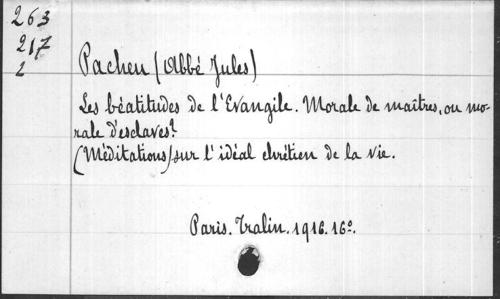 263
217
2
Pacheu (Abbé Jules)
Les béatitudes de l'Evangile. Morale de maîtres, ou mo-
rale d'esclaves?
(Méditations) sur l'idéal chrétien de la vie.
Paris. Tralin. 1916. 16º.